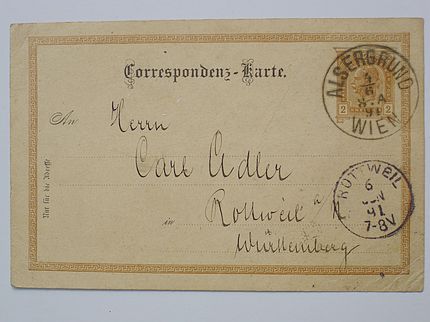 Correspondenz-Karte.
An Herrn
Carl Adler
in Rottweil a/N
Württemberg
Nur für die Adresse
2 2
ALSERGRUND
4
6
8.A
91
WIEN
ROTTWEIL
6
JUN
91
7-8V